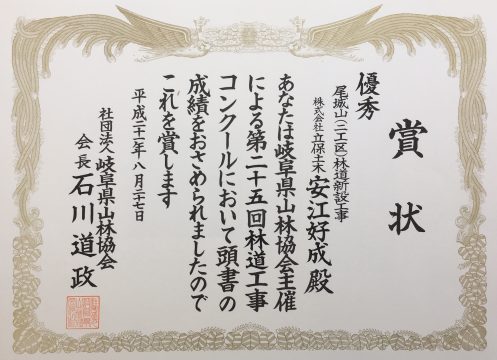 賞状
優秀
尾城山(三工区)林道新設工事
株式会社立保土木 安江好成殿
あなたは岐阜県山林協会主催
による第二十五回林道工事
コンクールにおいて頭書の
成績をおさめられましたので
これを賞します
平成二十二年八月二十七日
社団法人岐阜県山林協会
会長 石川道政